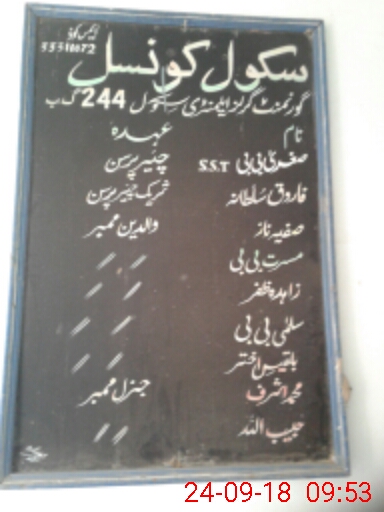 ایمس کوڈ
33310072
سکول کونسل
گورنمنٹ گرلز ایلیمنٹری سکول 244 گ ب
نام عہدہ
صغریٰ بی بی S.S.T چئیر پرسن
فاروق سُلطانہ شریک چئیر پرسن
صفیہ ناز والدین ممبر
مسرت بی بی 〃 〃
زاہدہ ظفر 〃 〃
سلمیٰ بی بی 〃 〃
بلقیس اختر 〃 〃
محمد اشرف جنرل ممبر
حبیب اللہ 〃 〃
24-09-18 09:53